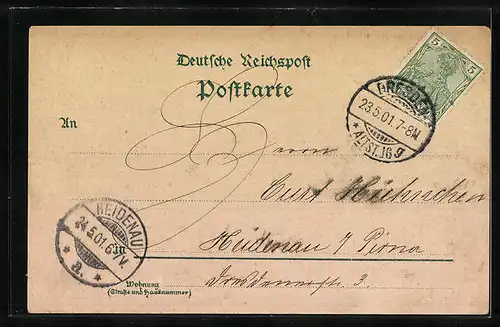 Deutsche Reichspost
Postkarte
5 5
DRESDEN
23.5.01.7-8N.
* ALTST. 16 g
An
Herrn
Curt Hühnchen
HEIDENAU
24.5.01.6-7V.
* a. *
in
Heidenau / Pirna
Wohnung
(Straße und Hausnummer)
Dresdenerstr. 3.